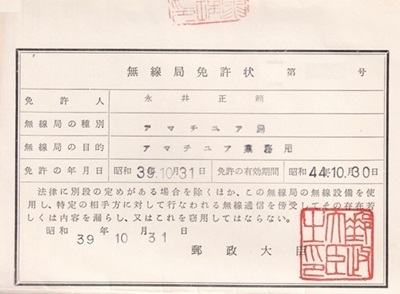 無線局免許状 第 号
免許人 永井正
無線局の種別 アマチュア局
無線局の目的 アマチュア業務用
免許の年月日 昭和 39.10.31日 免許の有効期間 昭和 44.10.30日
法律に別段の定めがある場合を除くほか、この無線局の無線設備を使
用し、特定の相手方に対して行なわれる無線通信を傍受してその存在若
しくは内容を漏らし、又はこれを窃用してはならない。
昭和
39 10 31日
郵政大臣
郵政大臣之印